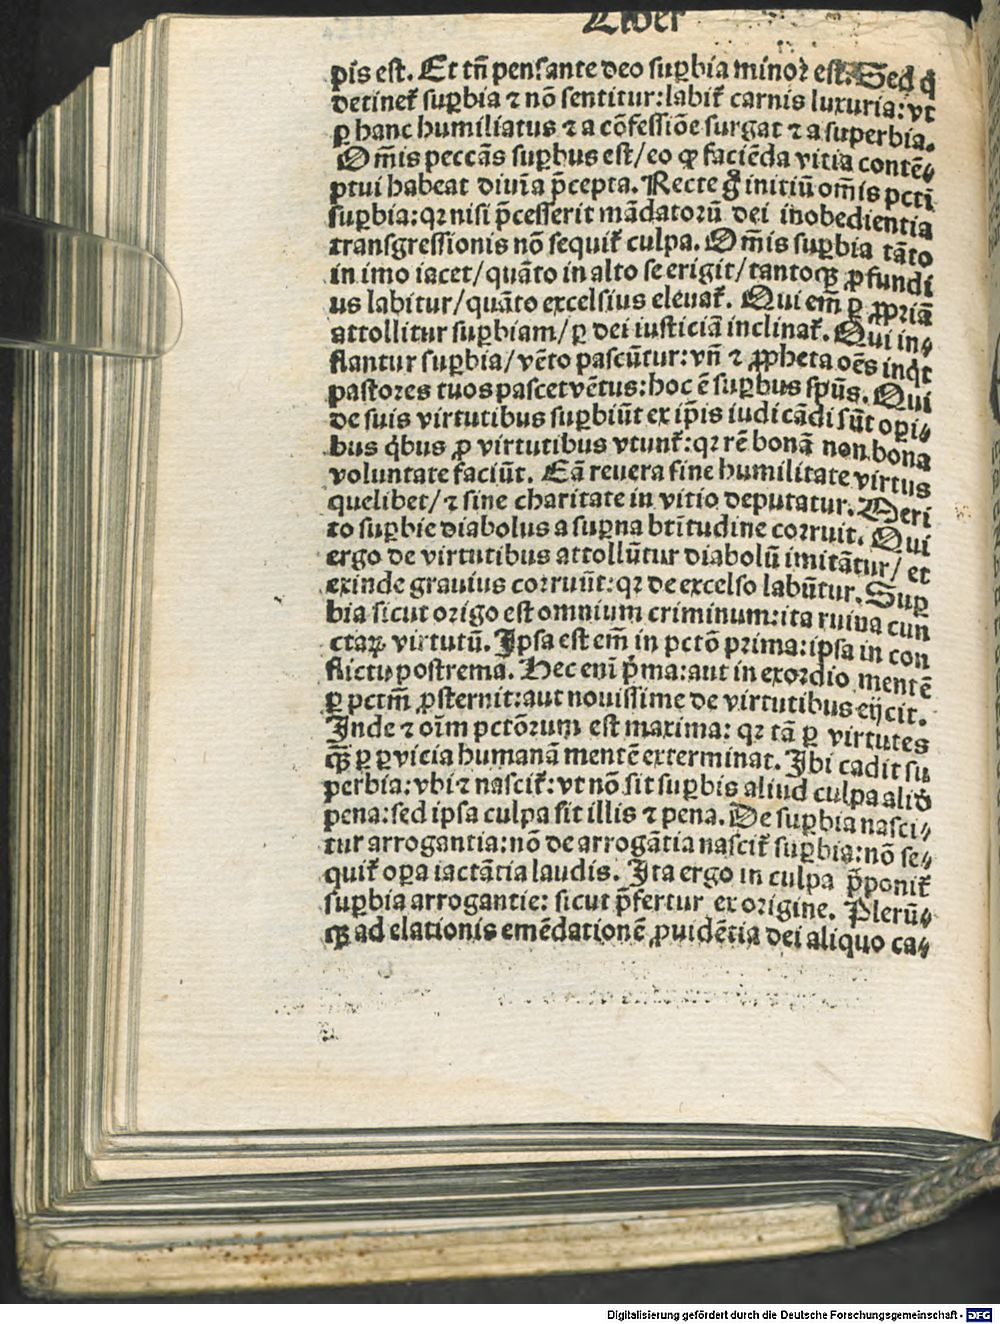 Liber
pis est. Et tñ pensante deo sup̱bia minor est. Sed q̇
detinet᷑ sup̱bia ⁊ nō sentitur: labit᷑ carnis luxuria: vt
p̱ hanc humiliatus ⁊ a cōfessiōe surgat ⁊ a superbia.
Om̄is peccās sup̱bus est/ eo ꝙ faciēda vitia contē⸗
ptui habeat diuīa p̄cepta. Recte g̊ initiū om̄is pctī
sup̱bia: qꝛ nisi p̄cesserit mādatorū dei inobedientia
transgressionis nō sequit᷑ culpa. Om̄is sup̱bia tāto
in imo iacet/ quāto in alto se erigit/ tantoqꝫ ꝓfundi
us labitur/ quāto excelsius eleuat᷑. Qui em̄ p̱ ꝓpriā
attollitur sup̱biam/ p̱ dei iusticiā inclinat᷑. Qui in⸗
flantur sup̱bia/ vēto pascūtur: vñ ⁊ ꝓpheta oēs inq̇t
pastores tuos pascet vētus: hoc ē sup̱bus spūs. Qui
de suis virtutibus sup̱biūt ex ip̄is iudicādi sūt op̱i⸗
bus q̇bus ꝓ virtutibus vtunt᷑: qꝛ rē bonā non bona
voluntate faciūt. Eā reuera sine humilitate virtus
quelibet/ ⁊ sine charitate in vitio deputatur. Meri
to sup̱bie diabolus a sup̱na btītudine corruit. Qui
ergo de virtutibus attollūtur diabolū imitātur/ et
exinde grauius corruūt: qꝛ de excelso labūtur. Sup̱
bia sicut origo est omnium criminum: ita ruina cun
ctaꝝ virtutū. Ipsa est em̄ in pctō prima: ipsa in con
flictu postrema. Hec enī p̄ma: aut in exordio mentē
p̱ pctm̄ ꝓsternit: aut nouissime de virtutibus eijcit.
Inde ⁊ oīm pctōrum est maxima: qꝛ tā p̱ virtutes
qꝫ̄ p̱ p̱vicia humanā mentē exterminat. Ibi cadit su
perbia: vbi ⁊ nascit᷑: vt nō sit sup̱bis aliud culpa aliđ
pena: sed ipsa culpa sit illis ⁊ pena. De sup̱bia nasci⸗
tur arrogantia: nō de arrogātia nascit᷑ sup̱bia: nō se⸗
quit᷑ op̱a iactātia laudis. Ita ergo in culpa p̄ponit᷑
sup̱bia arrogantie: sicut p̄fertur ex origine. Plerū⸗
qꝫ ad elationis emēdationē ꝓuidētia dei aliquo ca⸗
Digitalisierung gefördert durch die Deutsche Forschungsgemeinschaft - DFG